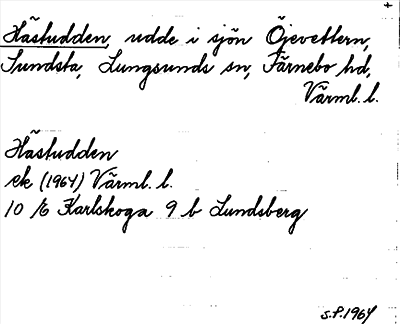 Hästudden, udde i sjön Öjevettern,
Sundsta, Lungsunds sn, Färnebo hd,
Värml. l.
Hästudden
ek (1964) Värml. l.
10 E Karlskoga 9 b Lundsberg
S.P. 1964